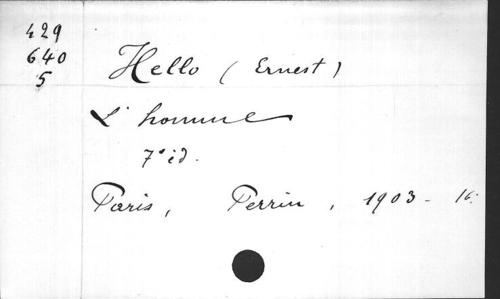 429
640
5
Hello (Ernest)
L'homme
7e éd.
Paris, Perrin, 1903 - 16.